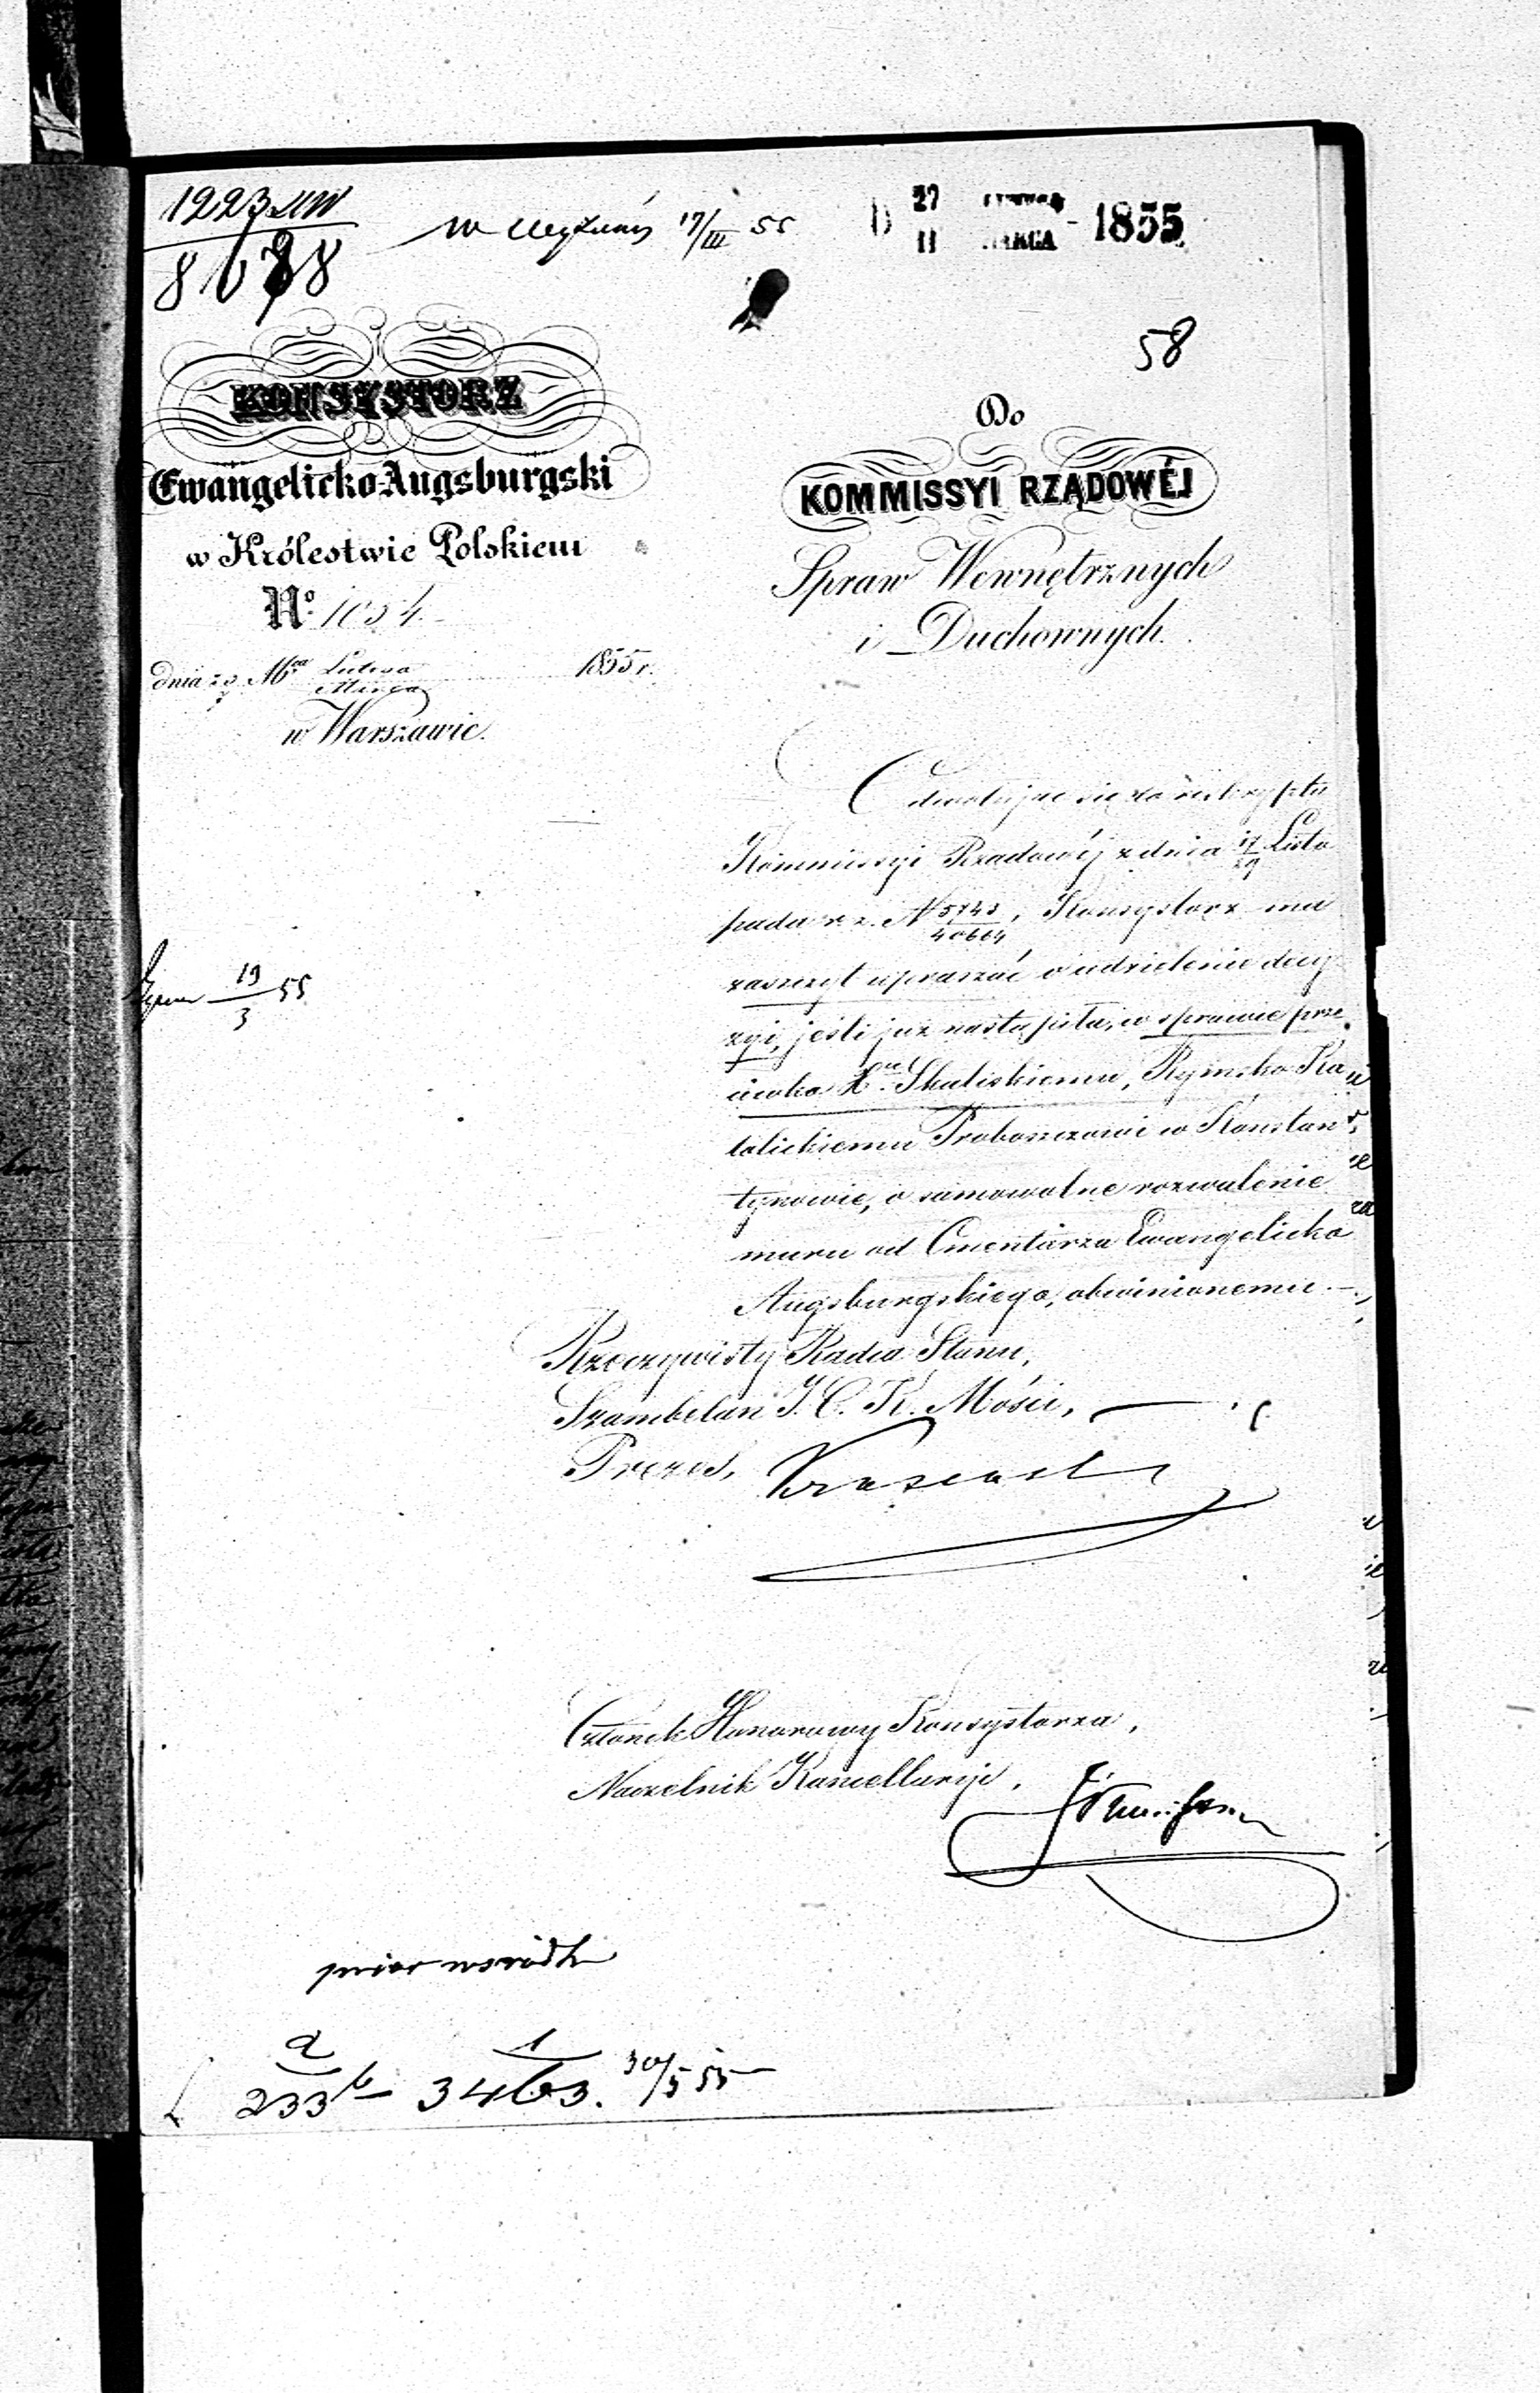 1223
8678
17/III 55
27
11 MARCA 1855
58
KONSYSTORZ
Ewangelicko-Augsburgski
w Królestwie Polskiem
No. 1054
dnia Mca Lutego Marca 1855 r.
w Warszawie.
Do
KOMMISSYI RZĄDOWÉJ
Spraw Wewnętrznych
i Duchownych.
Odwołując się do reskryptu
Kommissyi Rządowéj z dnia 17/29 Listo
pada r. z. N 5743/40664, Konsystorz ma
zaszczyt upraszać o udzielenie decy
zyi, jeśli już nastąpiła, w sprawie prze
ciwko X. Skaliskiemu, Rzymsko Ka
tolickiemu Proboszczowi w Konstan
tynowie, o samowolne rozwalenie
muru od Cmentarza Ewangelicko
Augsburgskiego, obwinionemu.
19/3 55
Rzeczywisty Radca Stanu,
Szambelan J. C. K. Mości,
Prezes,
Członek Honorowy Konsystorza,
Naczelnik Kancellaryi,
233 3463. 30/5 55